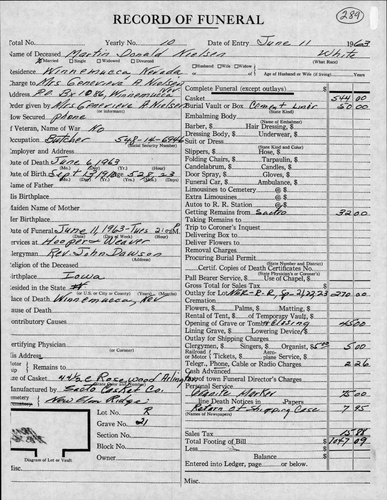 RECORD OF FUNERAL
289
Total No.
Yearly No. 10
Date of Entry June 11 1963
Name of Deceased Martin Donald Nielsen White
Married Single Widowed Divorced (What Race)
Residence Winnemucca Nevada
Husband Wife Widow of
Age of Husband or Wife (if living)
Charge to Mrs Genevieve A Nielsen
Address P.O. Bx 1086, Winnemucca
Order given by Mrs Genevieve A Nielsen
How Secured phone
If Veteran, Name of War No
Occupation Butcher
(Social Security Number)
Employer and Address
Date of Death June 6, 1963
Date of Birth Sept
Name of Father
His Birthplace
Maiden Name of Mother
Her Birthplace
Date of Funeral June 11, 1963 - Tues
Services at Hooper & Weaver
Clergyman Rev. John Dawson
Religion of the Deceased
Birthplace Iowa
Resided in the State
Place of Death Winnemucca, Nev
Contributory Causes
Certifying Physician
His Address
Motor Remains to
Size of Casket
Manufactured by Casket Co.
Cemetery New Elm Ridge
Lot No. R
Grave No. 21
Section No.
Block No.
Owner
Diagram of Lot or Vault
Complete Funeral (except outlays)
Casket 544 00
Burial Vault or Box Cement Liner 50 00
(State Kind)
Embalming Body
(Name of Embalmer)
Barber, $ Hair Dressing, $
Dressing Body, $
Suit or Dress
(State Kind and Color)
Slippers, $ Hose, $
Folding Chairs, $ Tarpaulin, $
Candelabrum, $ Candles, $
Door Spray, $ Gloves, $
Funeral Car, $ Ambulance, $
Limousines to Cemetery @ $
Extra Limousines @ $
Autos to R. R. Station @ $
Getting Remains from 32 00
Taking Remains to
Trip to Coroner's Inquest
Delivering Box to
Deliver Flowers to
Removal Charges
Procuring Burial Permit
(State Number and District)
Certif. Copies of Death Certificates No.
Pall Bearer Service, $ Use of Chapel, $
Gross Total for Sales Tax $
Outlay for Lot 270 00
Cremation
Flowers, $ Palms, $ Matting, $
Rental of Tent, $ of Temporary Vault, $
Opening of Grave or Tomb & closing 45 00
Lining Grave, $ Lowering Device, $
Outlay for Shipping Charges
Clergymen, $ Singers, $ Organist, $ 5.00 5 00
Railroad or Motor Tickets, $ Aeroplane Service, $
Telegr., Phone, Cable or Radio Charges 2 26
Cash Advanced
Out of town Funeral Director's Charges
Personal Service
Granite Marker 75 00
line Death Notices in Papers
Return of Shipping Case 7 95
(Names of Newspapers)
Sales Tax 15 88
Total Footing of Bill 1047 09
Entered into Ledger, page or below.
Misc.